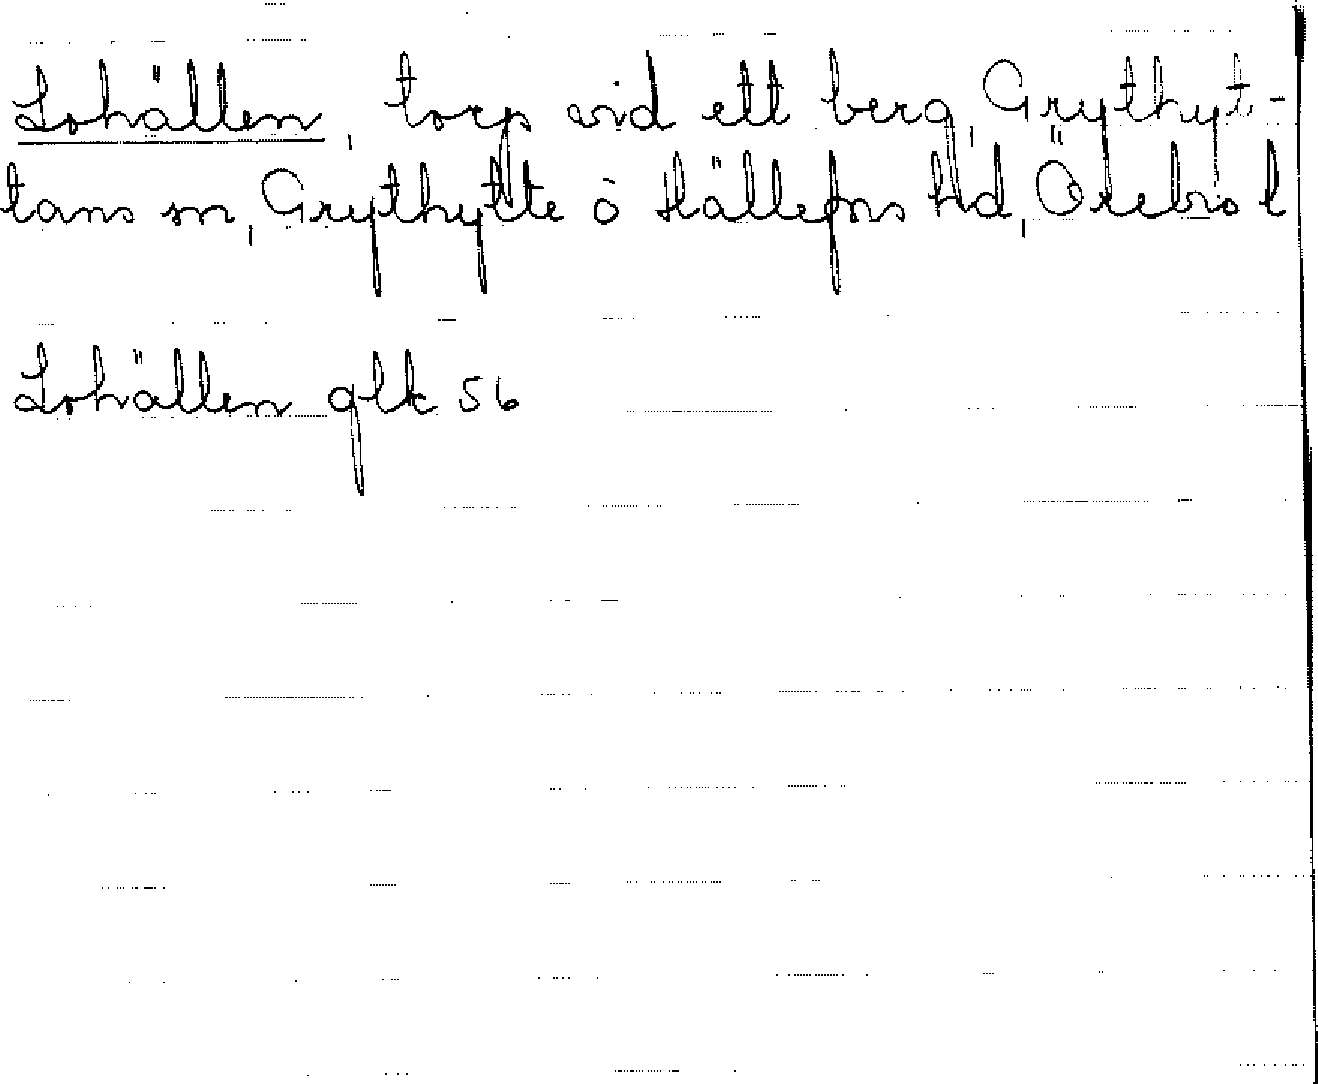 Lohällen, torp vid ett berg, Grythyt-
tans sn, Grythytte o Hällefors hd, Örebro l
Lohällen glk 56